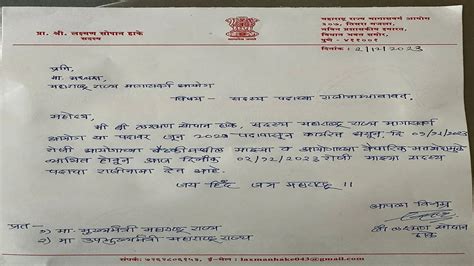 प्रा. श्री. लक्ष्मण सोपान हाके
सदस्य
महाराष्ट्र राज्य मागासवर्ग आयोग
३०७, तिसरा मजला,
नविन प्रशासकीय इमारत,
विधान भवन समोर,
पुणे - ४११००१
दिनांक : 2/12/2023
प्रति,
मा. अध्यक्ष
महाराष्ट्र राज्य मागासवर्ग आयोग
विषय - सदस्य पदाच्या राजीनाम्याबाबत.
महोदय,
मी श्री लक्ष्मण सोपान हाके, सदस्य महाराष्ट्र राज्य मागासवर्ग
आयोग या पदावर जून 2021 पासून कार्यरत असून, दि 01/12/2023
रोजी आयोगाच्या बैठकीमधील माझ्या व आयोगाच्या वैचारिक मतभेदामुळे
व्यथित होवून आज दिनांक 02/12/2023 रोजी माझ्या सदस्य
पदाचा राजीनामा देत आहे.
जय हिंद जय महाराष्ट्र !!
आपला विनम्र
श्री लक्ष्मण सोपान
हाके
प्रत - 1) मा. मुख्यमंत्री महाराष्ट्र राज्य
2) मा. उपमुख्यमंत्री महाराष्ट्र राज्य
संपर्क: ई - मेल : laxmanhake043@gmail.com